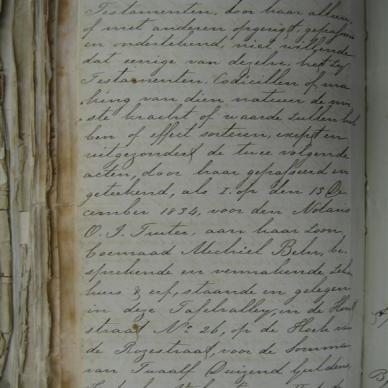 Testamenten, door haar alleen
of met anderen opgerigt, gepasseerd
en onderteekend, niet willende
dat eenige van dezelve, het zij
Testamenten, Codicillen of ma
king van dien natuur de min
ste kracht of waarde zullen heb
ben of effect sorteren, except en
uitgezonderd de twee volgende
acten, door haar gepasseerd en
geteekend, als 1. op den 13 De
cember 1834, voor den Notaris
O. J. Truter, aan haar Zoon
Coenraad Machiel Behr, be
sprekende en vermakende zeker
huis & erf, staande en gelegen
in deze Tafelvalley, in de
straat No. 26, op de Hoek van
de Rozestraat, voor de Somma
van Twaalf Duizend Guldens,